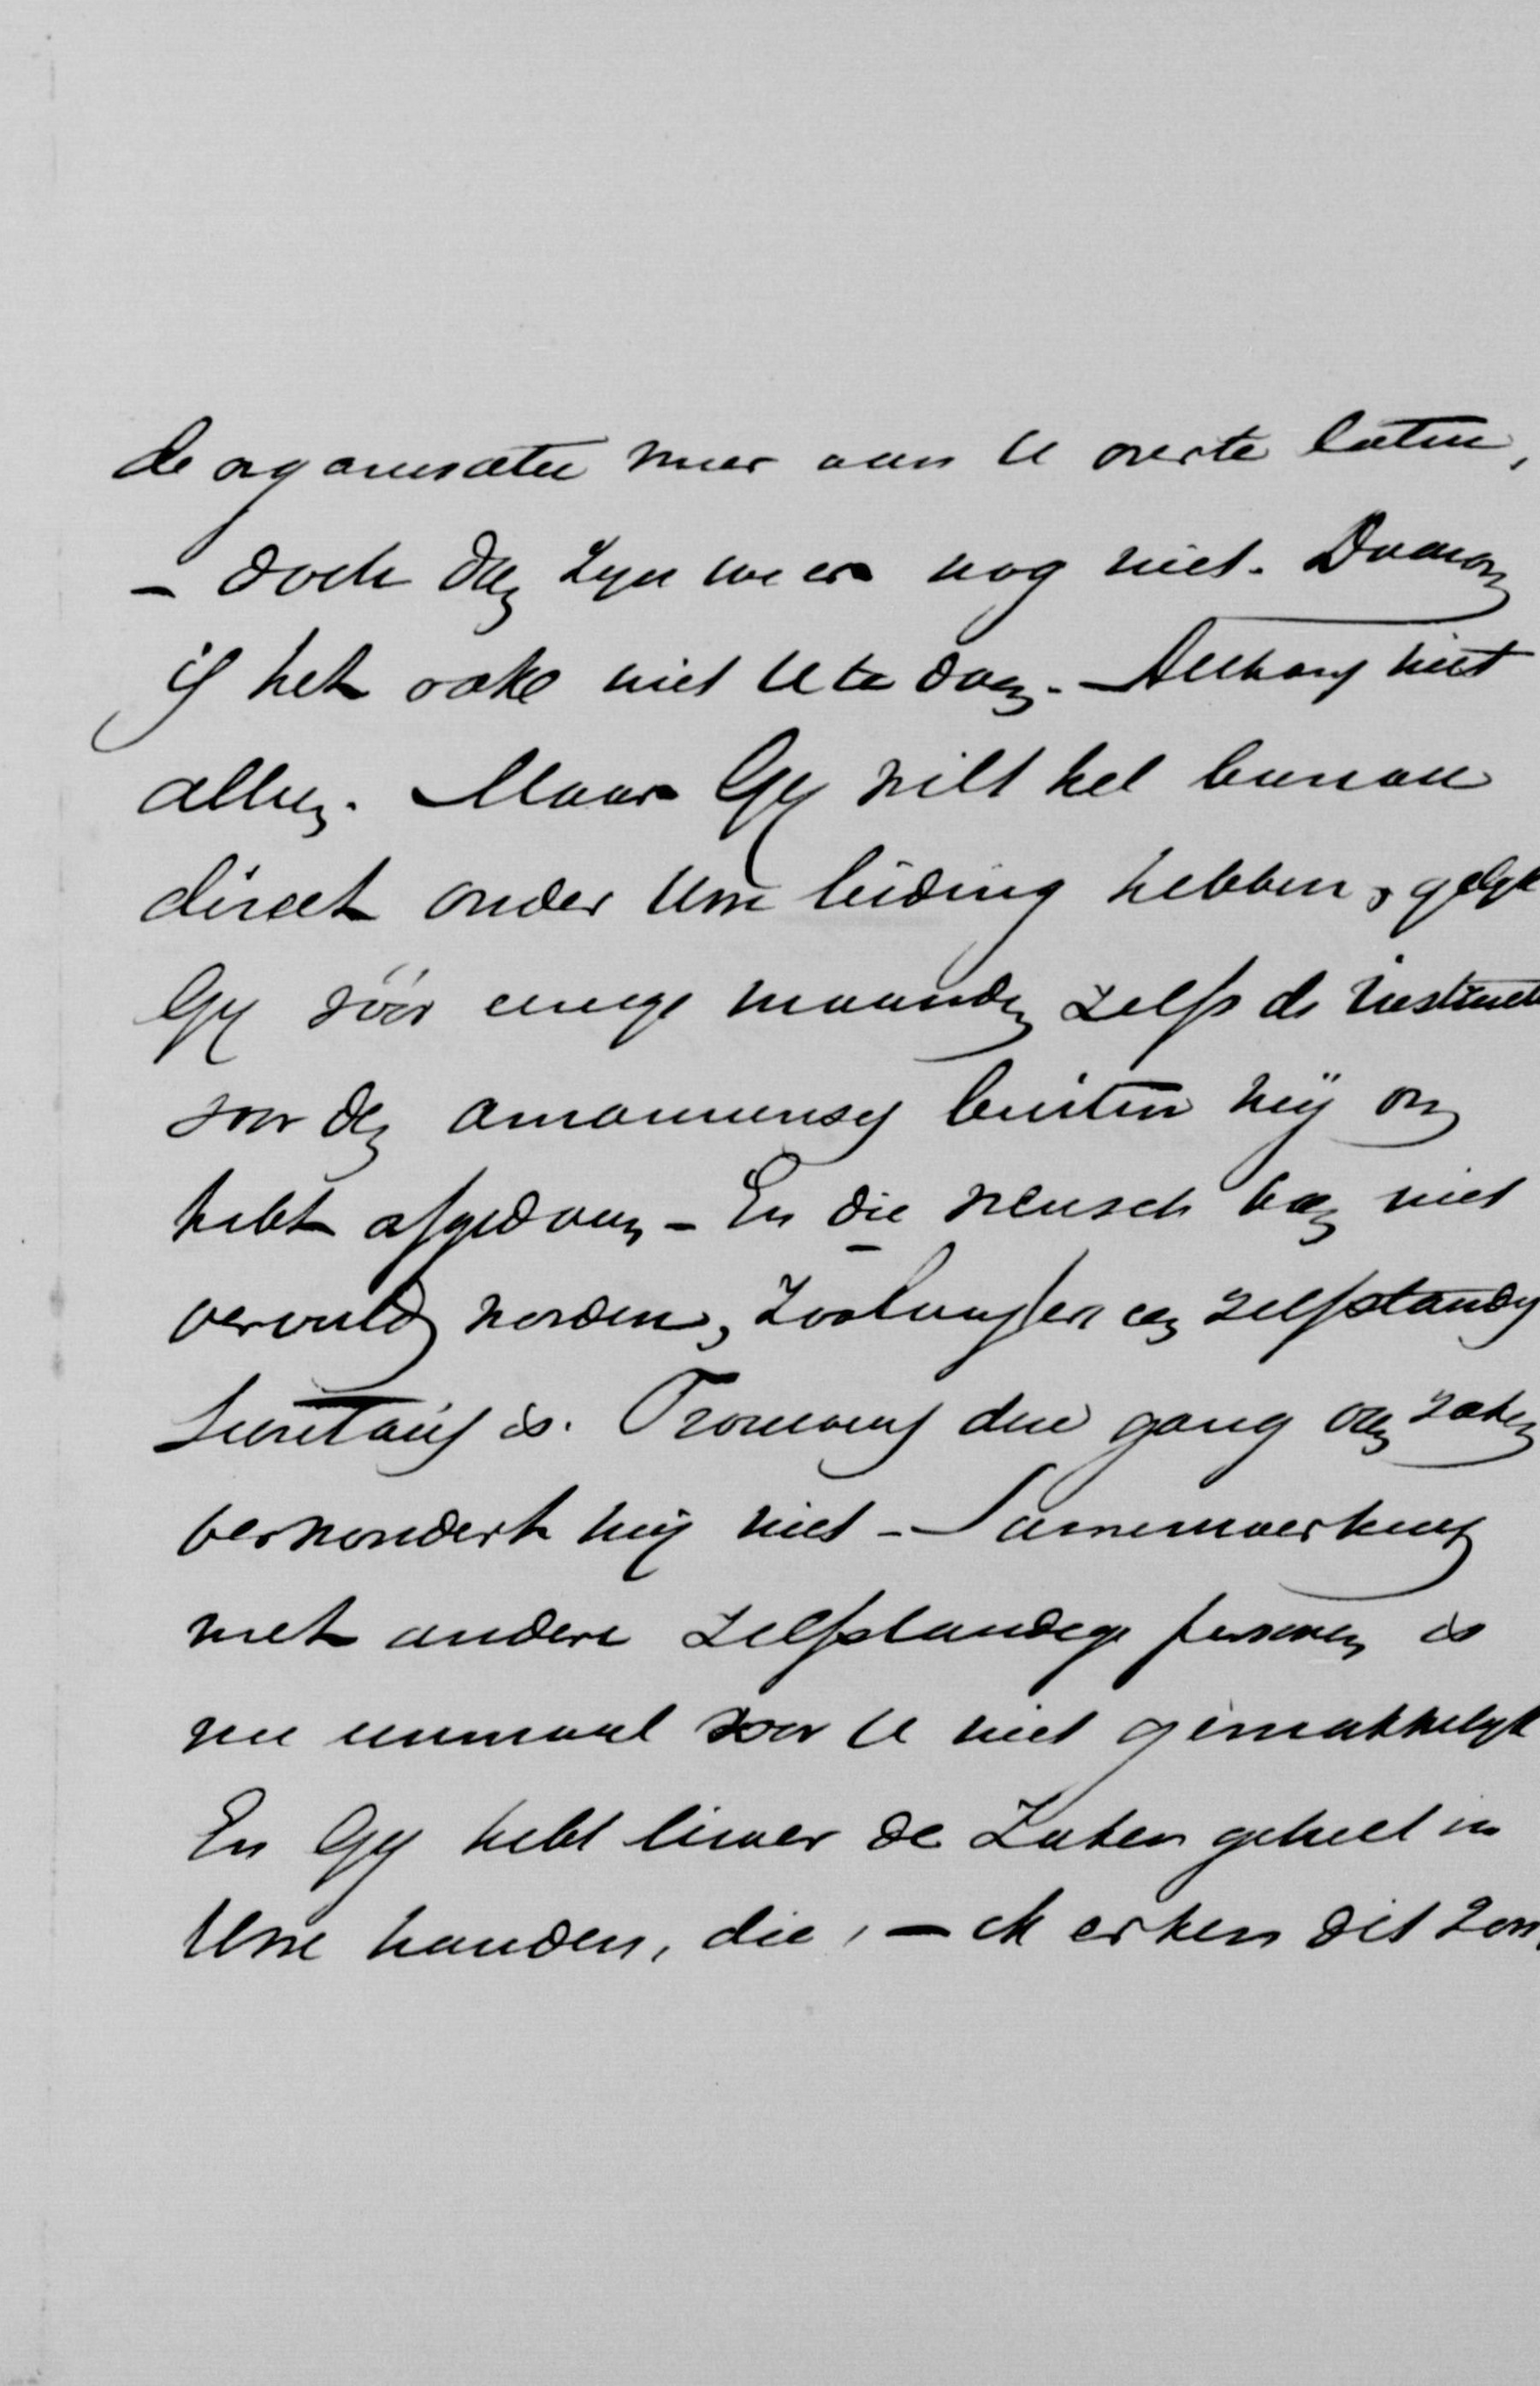 de organisatie meer aan U over te laten,
- doch dan zijn we er nog niet. Daarom
is het ook niet U te doen. Althans niet
alleen. Maar Gij wilt het bureau
direct onder Uwe leiding hebben, gelijk
Gij vóór eenige maanden zelfs de instructie
voor den amanuensis buiten mij om
hebt afgedaan - En die wensch kan niet
vervuld worden, zoolang er een zelfstandig
Secretaris is. Trouwens den gang van zaken
verwondert mij niet - Samenwerking
met andere zelfstandige personen is
nu eenmaal voor U niet gemakkelijk
En Gij hebt liever de Zaken geheel in
Uwe handen, die, - ik erken dit